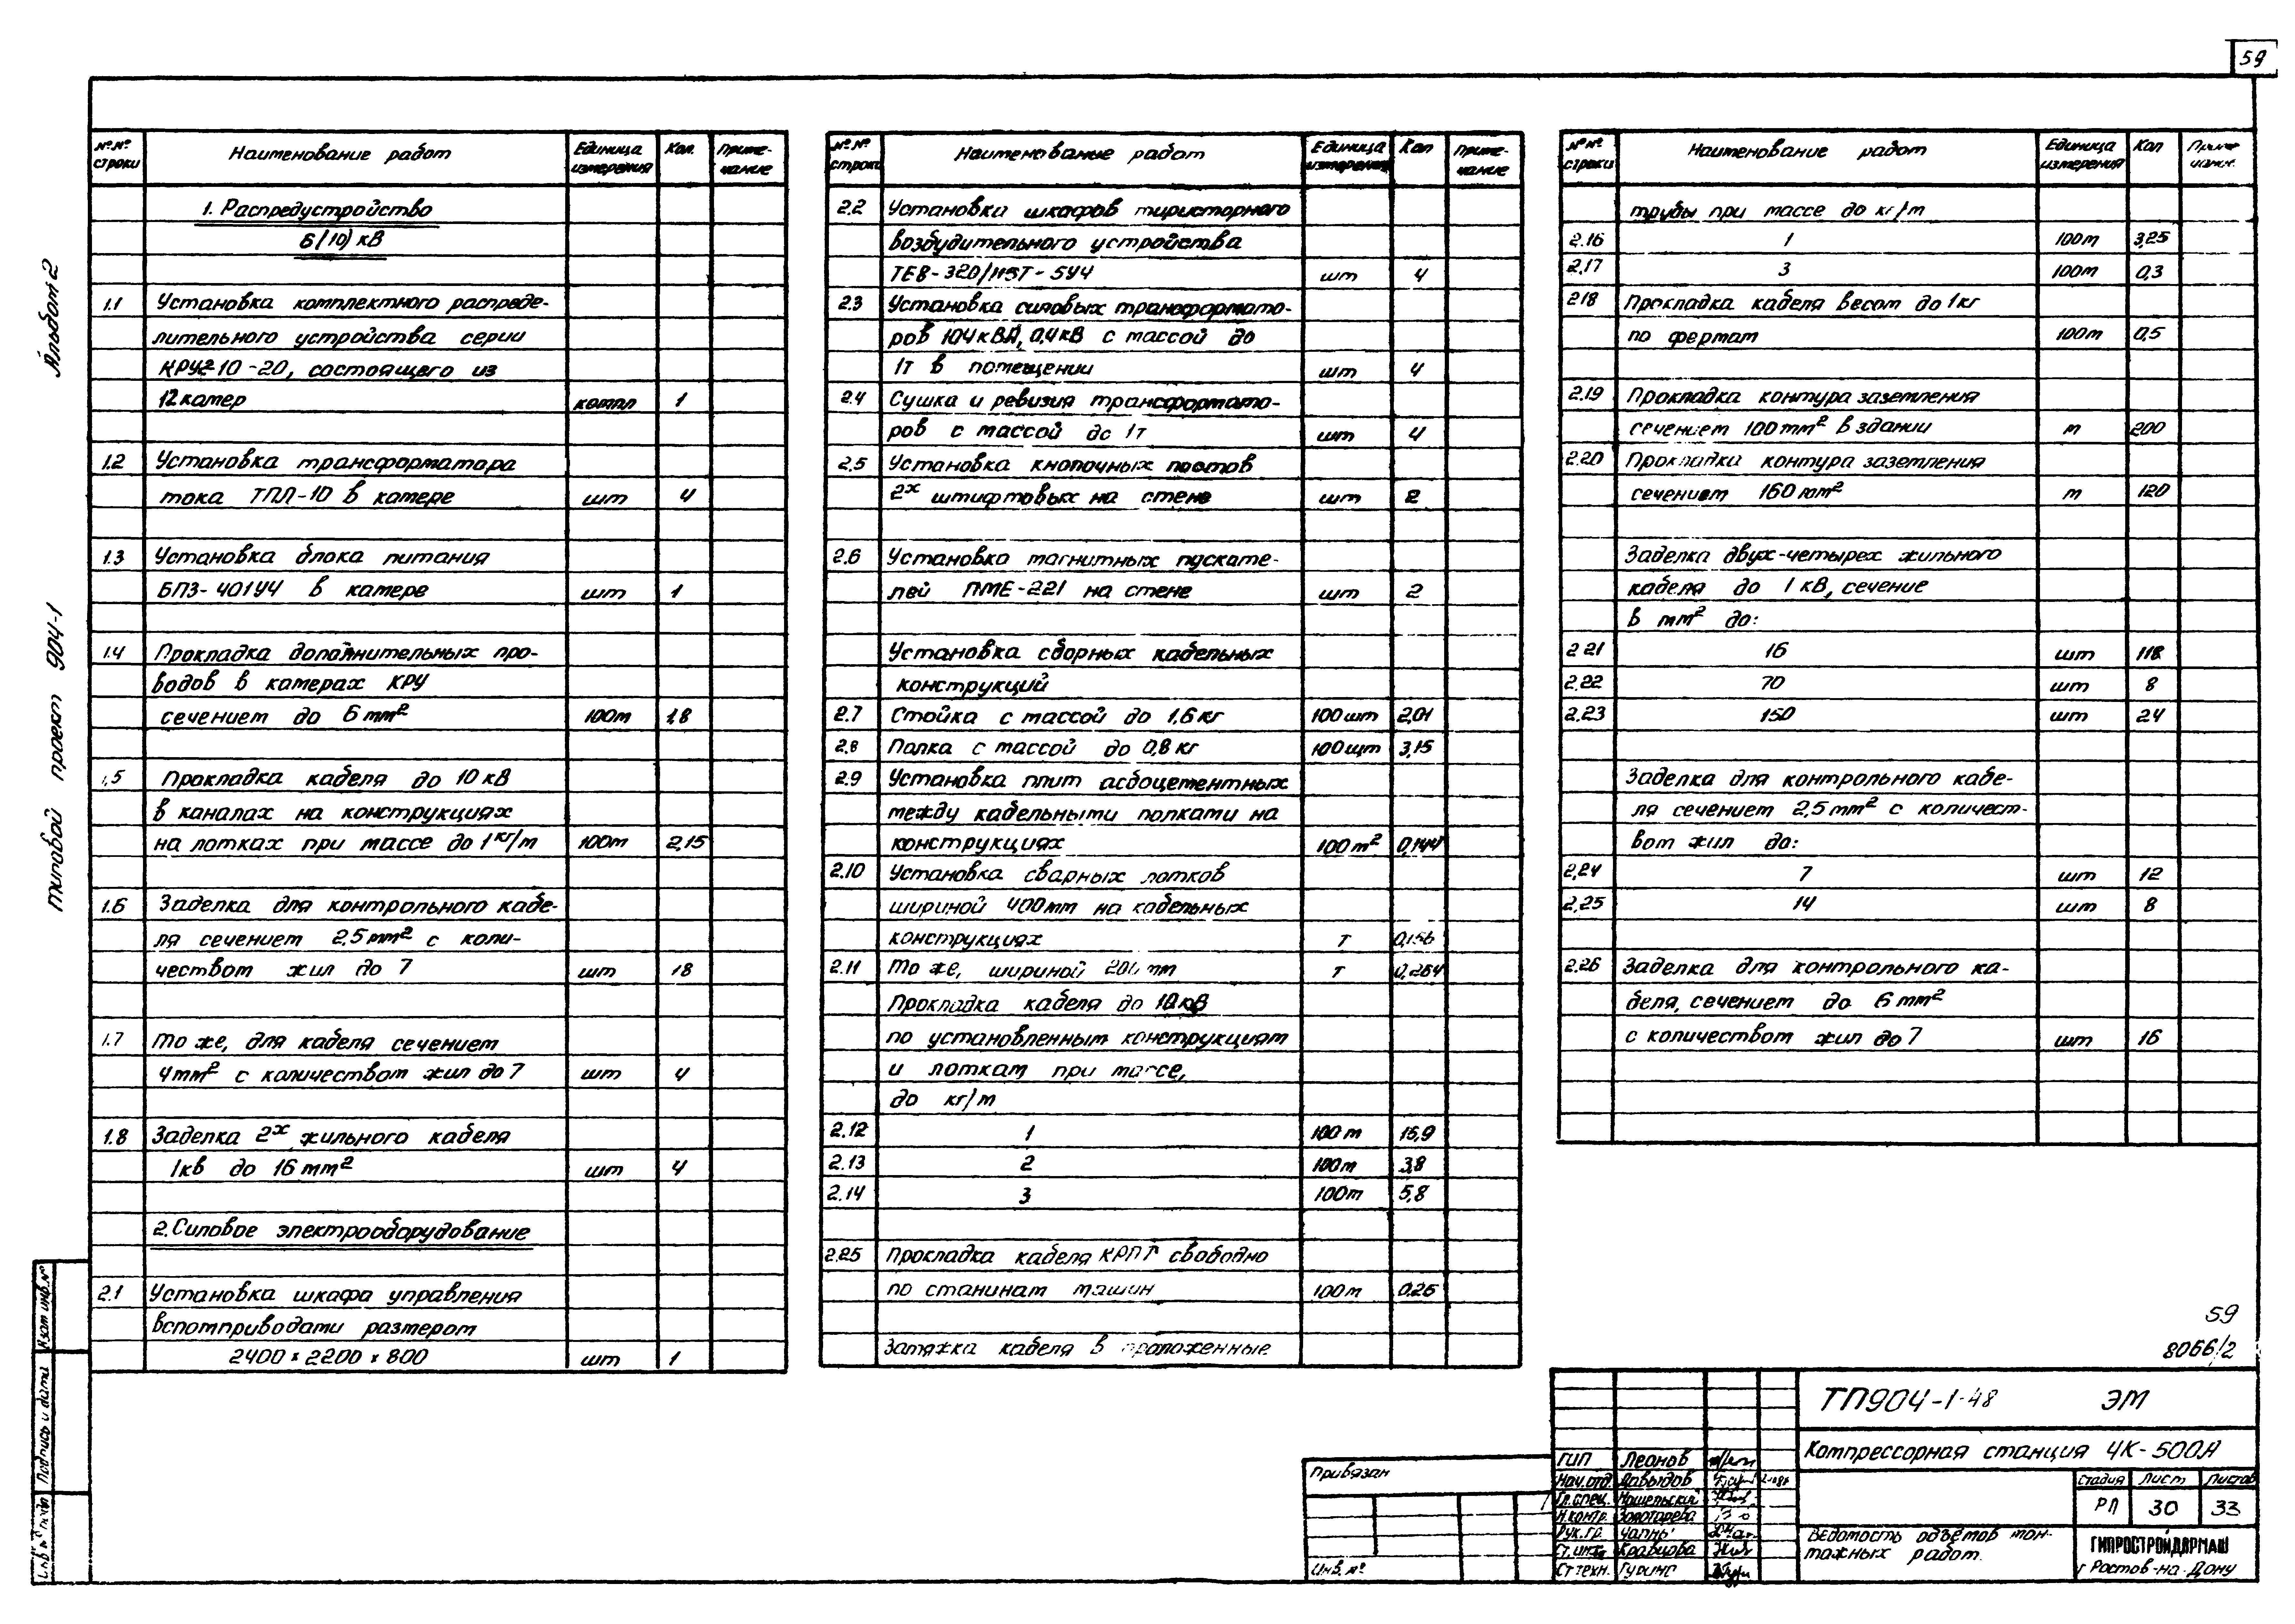 59
Альбом 2
типовой проект 904-1
№№ строки Наименование работ Единица измерения Кол. Приме-чание
1. Распредустройство
6/10) кВ
1.1 Установка комплектного распреде-
лительного устройства серии
КРУ2-10-20, состоящего из
12 камер компл 1
1.2 Установка трансформатора
тока ТПЛ-10 в камере шт 4
1.3 Установка блока питания
БПЗ-401У4 в камере шт 1
1.4 Прокладка дополнительных про-
водов в камерах КРУ
сечением до 6 мм² 100м 1,8
1.5 Прокладка кабеля до 10 кВ
в каналах на конструкциях
на лотках при массе до 1 кг/м 100м 2,15
1.6 Заделка для контрольного кабе-
ля сечением 2,5 мм² с коли-
чеством жил до 7 шт 18
1.7 То же, для кабеля сечением
4 мм² с количеством жил до 7 шт 4
1.8 Заделка 2х жильного кабеля
1кв до 16 мм² шт 4
2. Силовое электрооборудование
2.1 Установка шкафа управления
вспомприводами размером
2400 х 2200 х 800 шт 1
№№ строки Наименование работ Единица измерения Кол Приме-чание
2.2 Установка шкафов тиристорного
возбудительного устройства
ТЕВ-320/115Т-5У4 шт 4
2.3 Установка силовых трансформато-
ров 104 кВА, 0,4 кВ с массой до
1т в помещении шт 4
2.4 Сушка и ревизия трансформато-
ров с массой до 1т шт 4
2.5 Установка кнопочных постов
2х штифтовых на стене шт 2
2.6 Установка магнитных пускате-
лей ПМЕ-221 на стене шт 2
Установка сборных кабельных
конструкций
2.7 Стойка с массой до 1,6 кг 100 шт 2,01
2.8 Полка с массой до 0,8 кг 100 шт 3,15
2.9 Установка плит асбоцементных
между кабельными полками на
конструкциях 100 м² 0,144
2.10 Установка сварных лотков
шириной 400мм на кабельных
конструкциях т 0,156
2.11 То же, шириной 200 мм т 0,264
Прокладка кабеля до 10 кВ
по установленным конструкциям
и лоткам при массе,
до кг/м
2.12 1 100 м 15,9
2.13 2 100м 3,8
2.14 3 100м 5,8
2.25 Прокладка кабеля КРПТ свободно
по станинам машин 100м 0,25
Затяжка кабеля в проложенные
№№ строки Наименование работ Единица измерения Кол Приме-чание
трубы при массе до кг/м
2.16 1 100м 3,25
2.17 3 100м 0,3
2.18 Прокладка кабеля весом до 1 кг
по фермам 100м 0,5
2.19 Прокладка контура заземления
сечением 100 мм² в здании м 200
2.20 Прокладка контура заземления
сечением 160 мм² м 120
Заделка двух-четырех жильного
кабеля до 1 кВ, сечение
в мм² до:
2.21 16 шт 118
2.22 70 шт 8
2.23 150 шт 24
Заделка для контрольного кабе-
ля сечением 2,5 мм² с количест-
вом жил до:
2.24 7 шт 12
2.25 14 шт 8
2.26 Заделка для контрольного ка-
беля, сечением до 6 мм²
с количеством жил до 7 шт 16
59
8066/2
ТП904-1-48 ЭМ
Компрессорная станция 4К-500А
Стадия Лист Листов
РП 30 33
Ведомость объемов мон-
тажных работ.
ГИПРОСТРОЙДОРМАШ
г Ростов-на-Дону
ГИП Леонов
Нач.отд Давыдов
Гл.спец.
Н.контр. Золотарева
Рук.гр.
Ст.инж Кравцова
Ст техн.
Привязан
Инв. №
Взам инв.№
Подпись и дата
Инв.№ подл